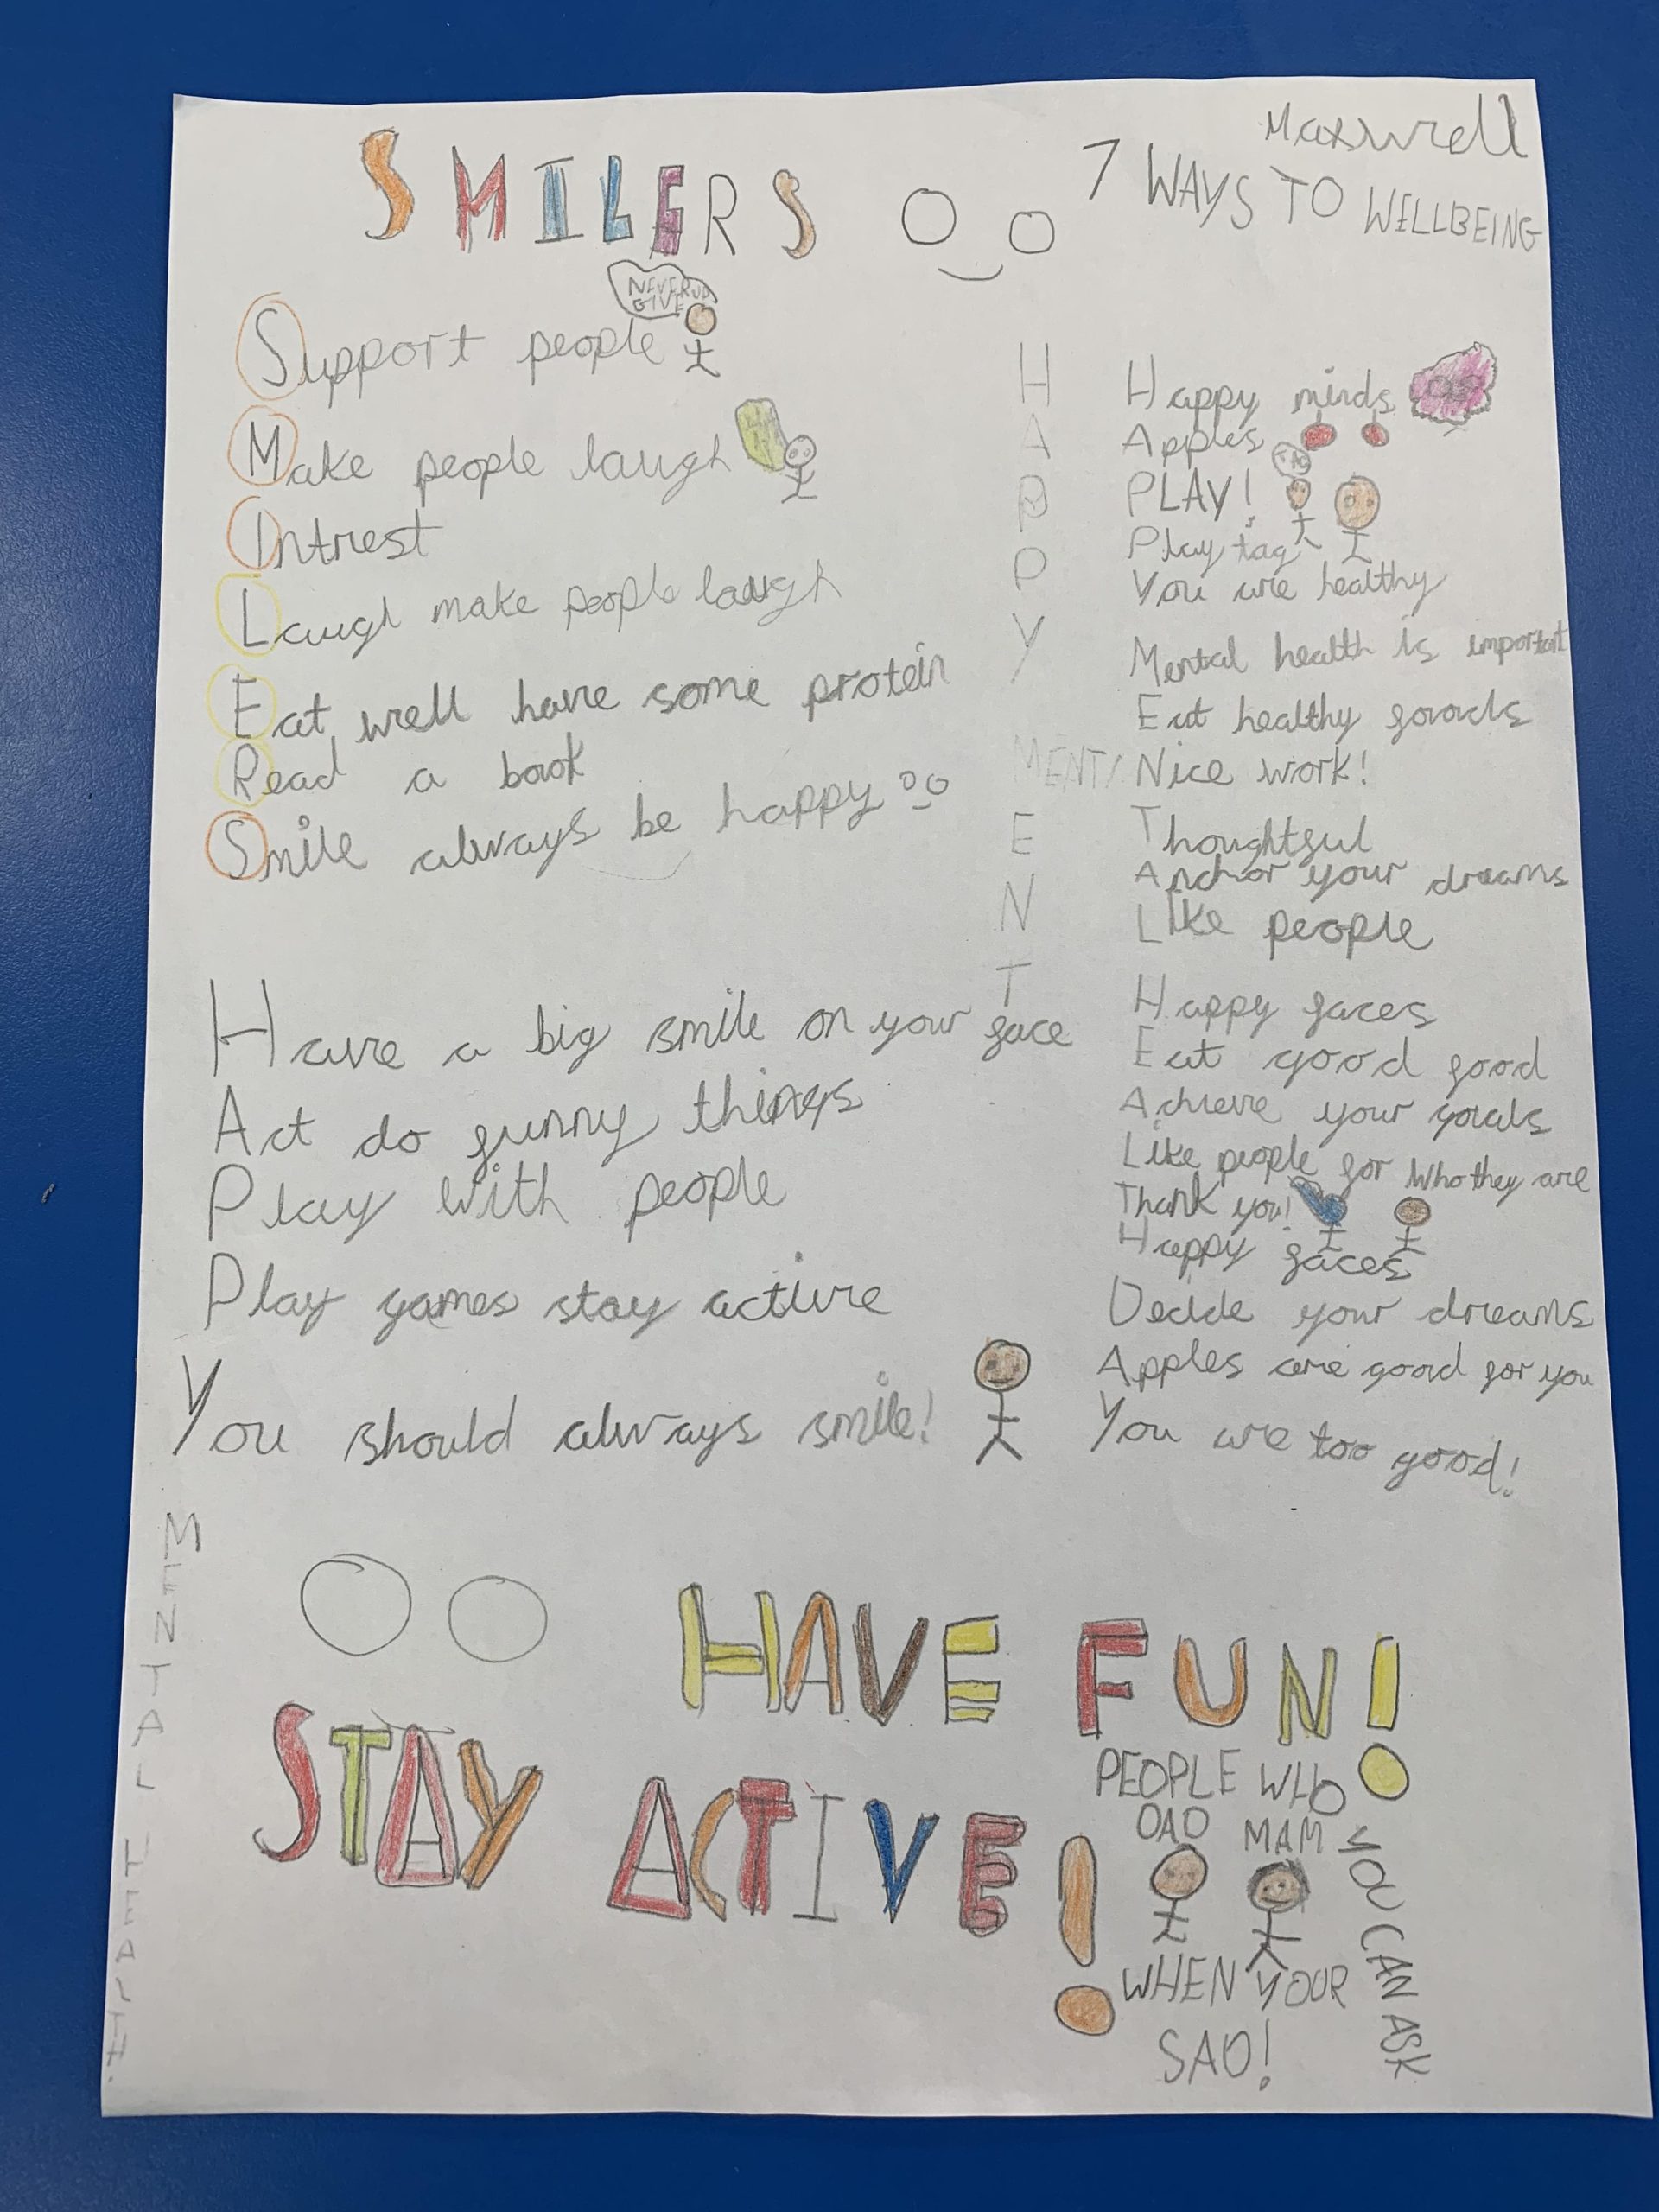 Maxwell
SMILERS
7 WAYS TO WILLBEING
NEVER
GIVE
Support people
Make people laugh
Intrest
Laugh make people laugh
Eat well have some protein
Read a book
Smile always be happy
Have a big smile on your face
Act do funny things
Play with people
Play games stay active
You should always smile!
H
A
P
P
Y
MENT
E
N
T
Happy minds
Apples
PLAY!
Play tag
You are healthy
Mental health is important
Eat healthy foods
Nice work!
Thoughtful
Anchor your dreams
Like people
Happy faces
Eat good food
Achieve your goals
Like people for who they are
Thank you!
Happy faces
Decide your dreams
Apples are good for you
You are too good!
MENTAL HEALTH.
HAVE FUN!
STAY ACTIVE!
PEOPLE WHO
YOU CAN ASK
DAD MAM
WHEN YOUR
SAD!